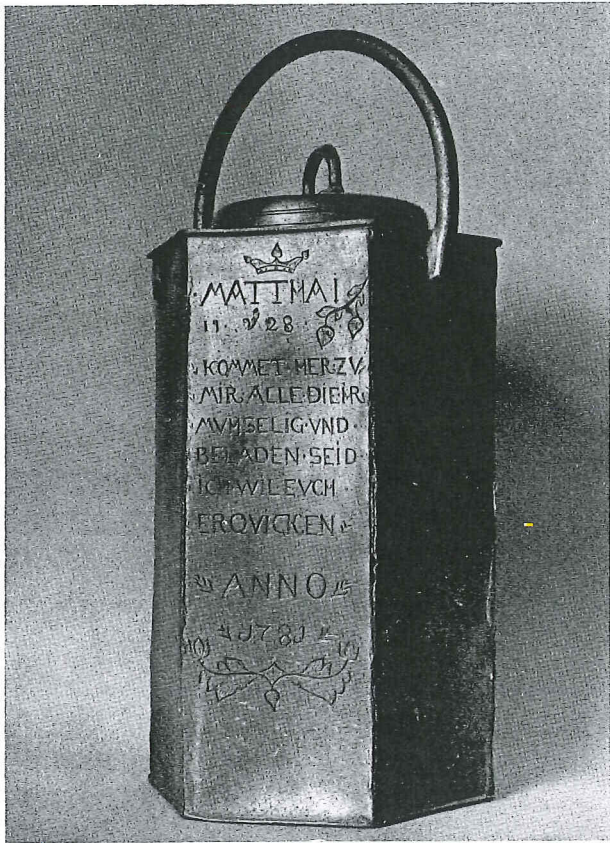 ·MATTHAI·
11 · V 28 ·
·KOMMET·HER·ZV
MIR·ALLE·DIE·IHR
·MVHSELIG·VND·
BELADEN·SEID
ICH·WIL·EVCH·
ERQVICKEN·
ANNO
1781